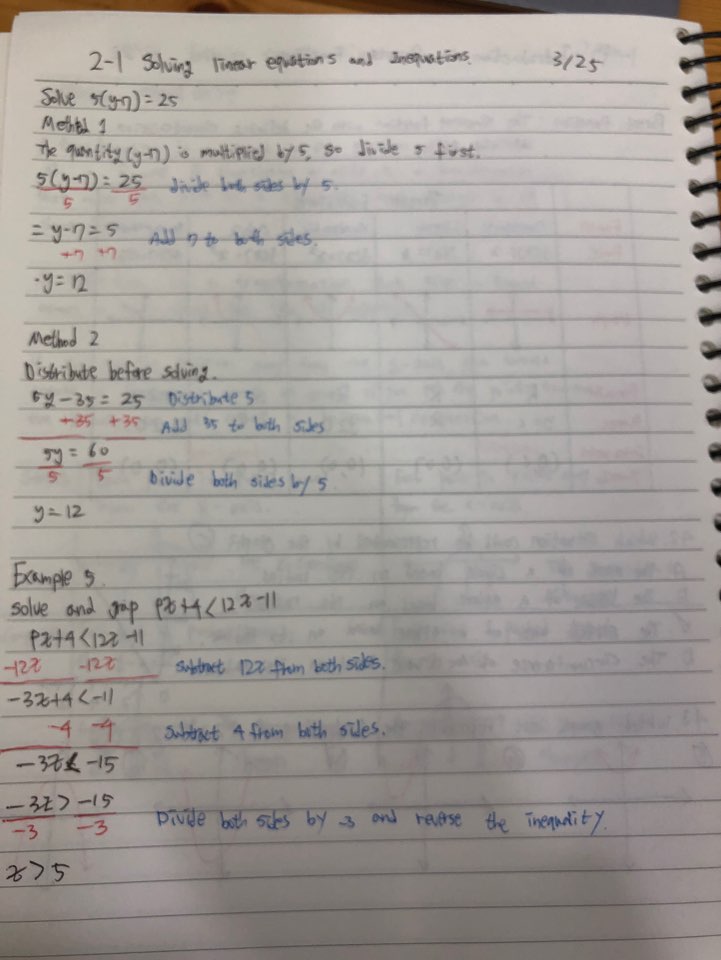 2-1 Solving linear equations and inequations. 3/25
Solve 5(y-7)=25
Method 1
The quantity (y-7) is multiplied by 5, so divide 5 first.
5(y-7) = 25 divide both sides by 5.
5 5
= y-7=5 Add 7 to both sides.
+7 +7
·y=12
Method 2
Distribute before solving.
5y-35=25 Distribute 5
+35 +35 Add 35 to both sides
5y = 60
5 5 Divide both sides by 5
y=12
Example 5.
solve and gap 9z+4<12z-11
9z+4<12z-11
-12z -12z Subtract 12z from both sides.
-3z+4<-11
-4 -4 Subtract 4 from both sides.
-3z< -15
-3z> -15
-3 -3 Divide both sides by -3 and reverse the inequality.
z>5